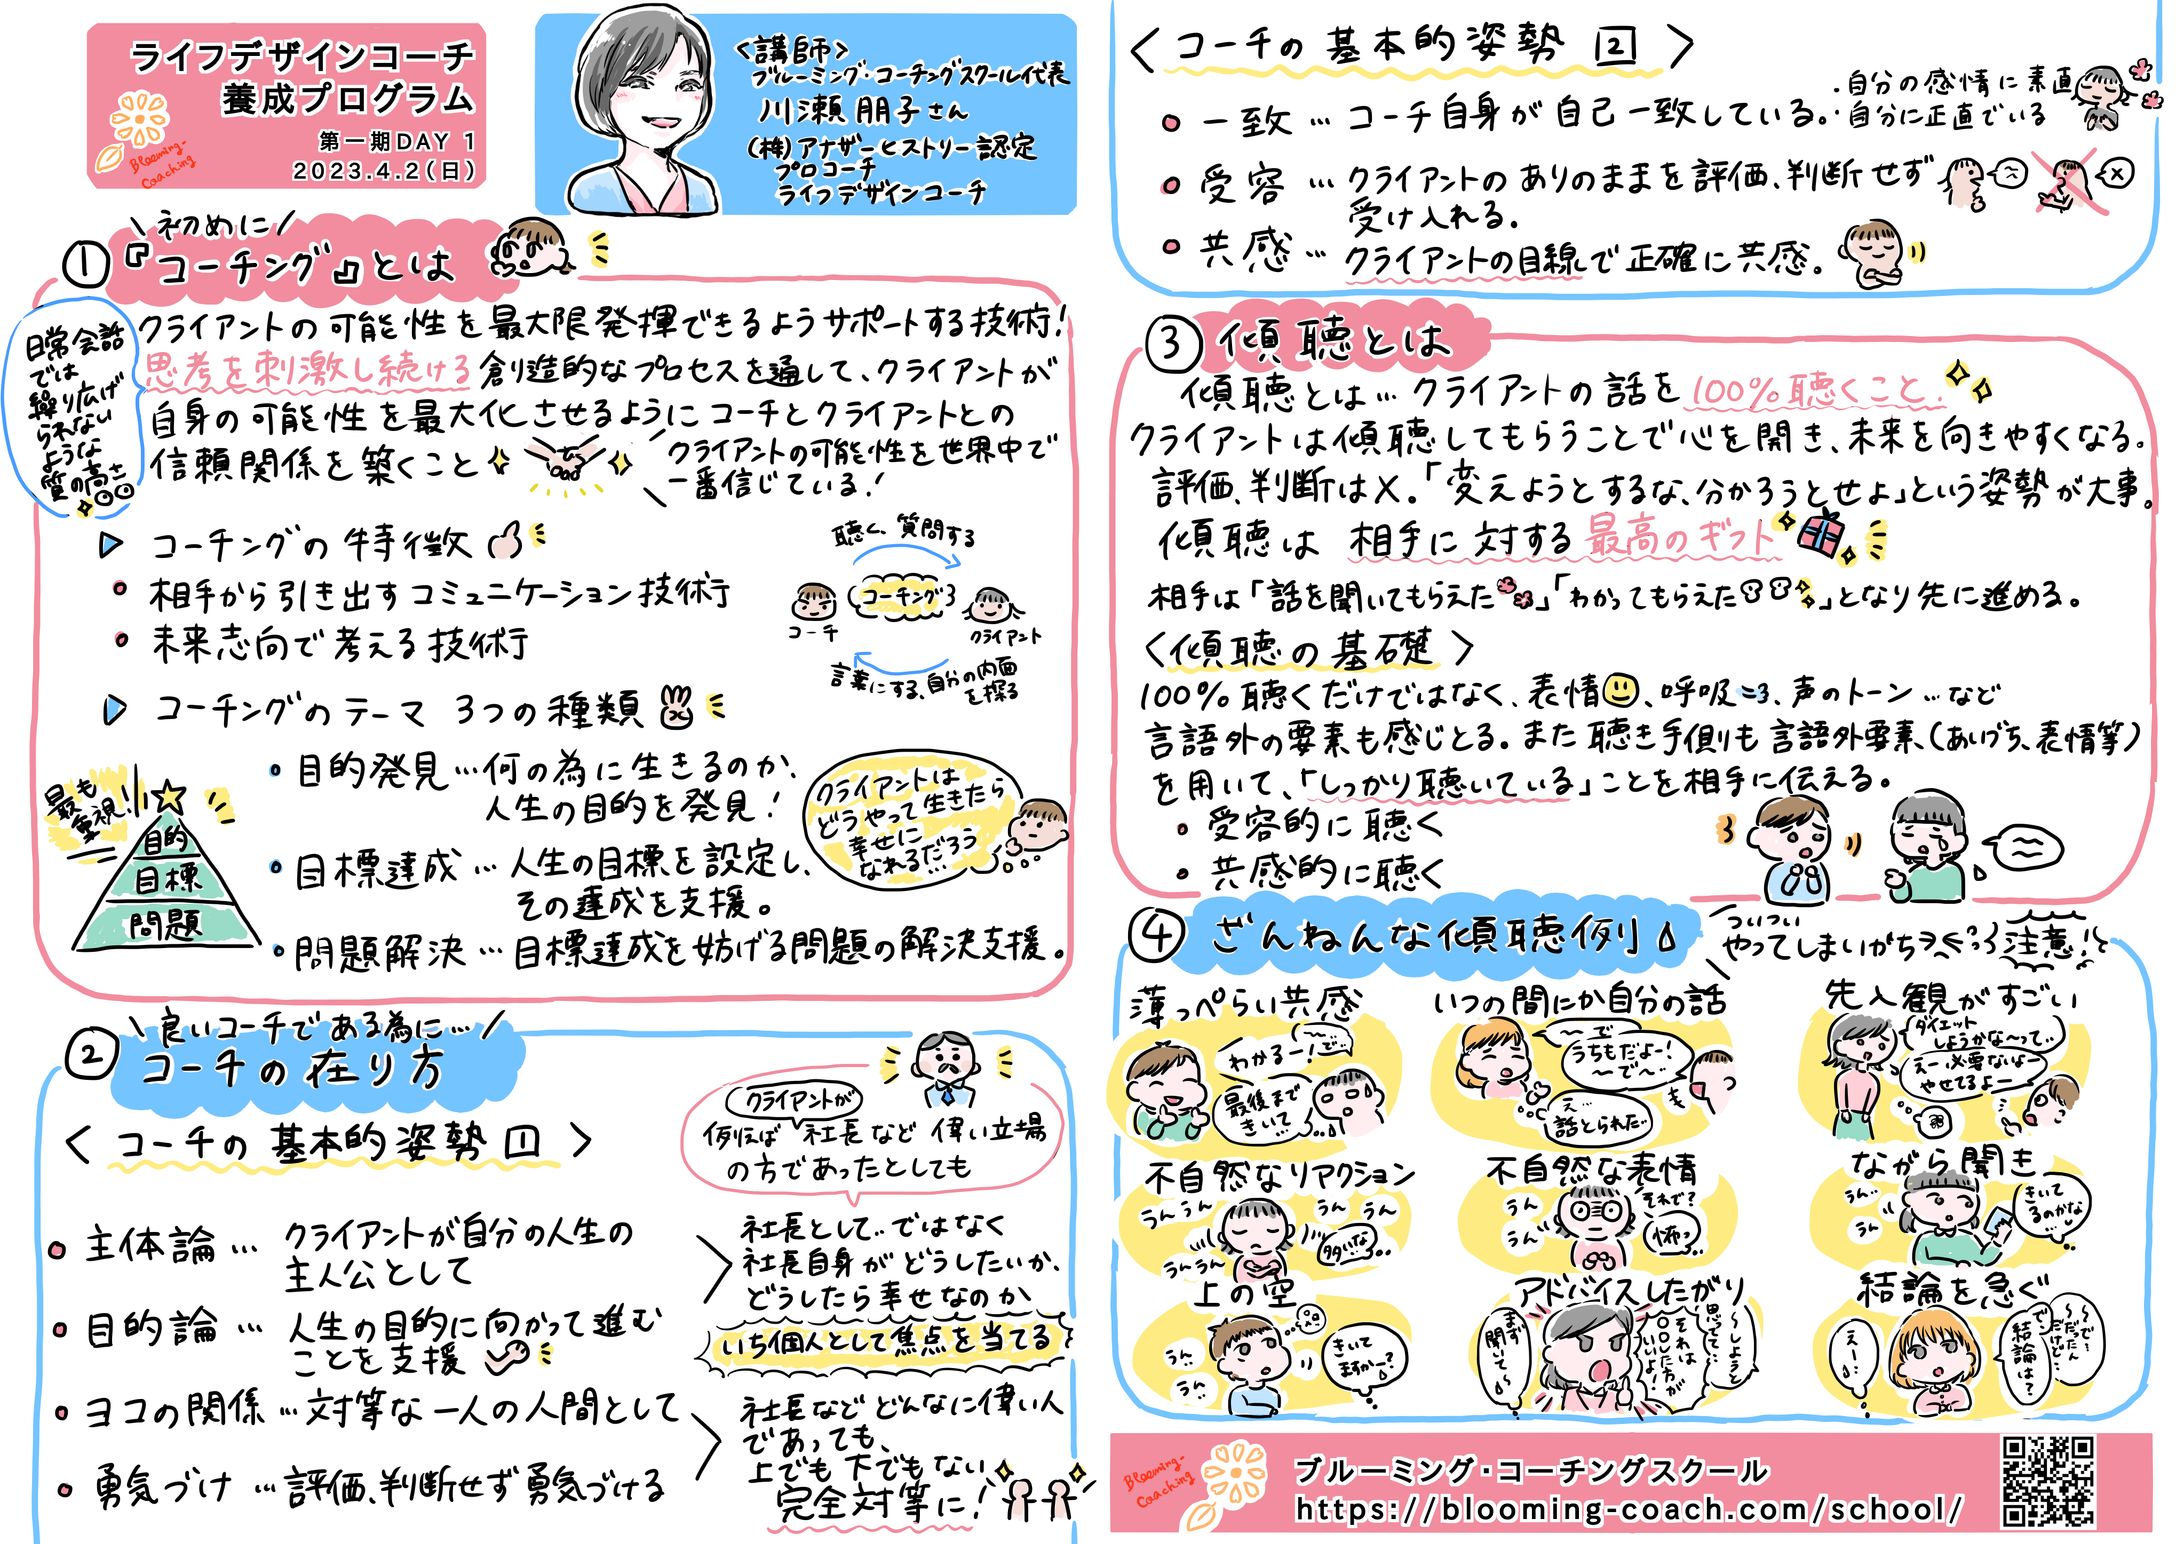 ライフデザインコーチ
養成プログラム
第一期DAY 1
2023.4.2(日)
Blooming-
Coaching
<講師>
ブルーミング・コーチングスクール代表
川瀬 朋子さん
(株)アナザーヒストリー認定
プロコーチ
ライフデザインコーチ
\初めに/
① 『コーチング』とは
日常会話
では
繰り広げ
られない
ような
質の高さ
クライアントの可能性を最大限発揮できるようサポートする技術!
思考を刺激し続ける創造的なプロセスを通して、クライアントが
自身の可能性を最大化させるようにコーチとクライアントとの
信頼関係を築くこと
クライアントの可能性を世界中で
一番信じている!
▷ コーチングの特徴
・相手から引き出すコミュニケーション技術
・未来志向で考える技術
聴く、質問する
コーチング
コーチ
クライアント
言葉にする、自分の内面
を探る
▷ コーチングのテーマ 3つの種類
最も
重視!
目的
目標
問題
・目的発見…何の為に生きるのか、
人生の目的を発見!
・目標達成…人生の目標を設定し、
その達成を支援。
・問題解決…目標達成を妨げる問題の解決支援。
クライアントは
どうやって生きたら
幸せに
なれるだろう…
\良いコーチである為に…/
② コーチの在り方
<コーチの基本的姿勢 1>
クライアントが
例えば 社長など 偉い立場
の方であったとしても
・主体論… クライアントが自分の人生の
主人公として
・目的論… 人生の目的に向かって進む
ことを支援
・ヨコの関係…対等な一人の人間として
・勇気づけ…評価、判断せず勇気づける
社長として‥ではなく
社長自身がどうしたいか、
どうしたら幸せなのか
いち個人として焦点を当てる
社長などどんなに偉い人
であっても、
上でも下でもない
完全対等に!
<コーチの基本的姿勢 2>
・一致…コーチ自身が自己一致している。
・自分の感情に素直
・自分に正直でいる
・受容…クライアントのありのままを評価、判断せず
受け入れる。
×
・共感…クライアントの目線で正確に共感。
③ 傾聴とは
傾聴とは…クライアントの話を100%聴くこと。
クライアントは傾聴してもらうことで心を開き、未来を向きやすくなる。
評価、判断は×。「変えようとするな、分かろうとせよ」という姿勢が大事。
傾聴は 相手に対する最高のギフト
相手は「話を聞いてもらえた」「わかってもらえた」となり先に進める。
<傾聴の基礎>
100%聴くだけではなく、表情、呼吸、声のトーン…など
言語外の要素も感じとる。また聴き手側も言語外要素(あいづち、表情等)
を用いて、「しっかり聴いている」ことを相手に伝える。
・受容的に聴く
・共感的に聴く
④ ざんねんな傾聴例
ついつい
やってしまいがち
注意!
薄っぺらい共感
わかるー!
〜で…
最後まで
きいて…
いつの間にか自分の話
〜で
うちもだよー!
〜で〜‥
え…
話とられた…
先入観がすごい
ダイエット
しようかな〜って‥
えー必要ないよー
やせてるよー
不自然なリアクション
うんうん
うん うん
うんうん
多いな…
不自然な表情
うん‥
うん‥
それで?
怖っ
ながら聞き
うん‥
うん‥
きいて
るのかな
…
上の空
うん‥
うん‥
きいて
ますかー?
アドバイスしたがり
〜しようと
思って…
それは
○○した方が
いいよ!
まず
聞いて〜
結論を急ぐ
〜で…
〜だったん
だけど…
で、
結論は?
え…
Blooming-
Coaching
ブルーミング・コーチングスクール
https://blooming-coach.com/school/